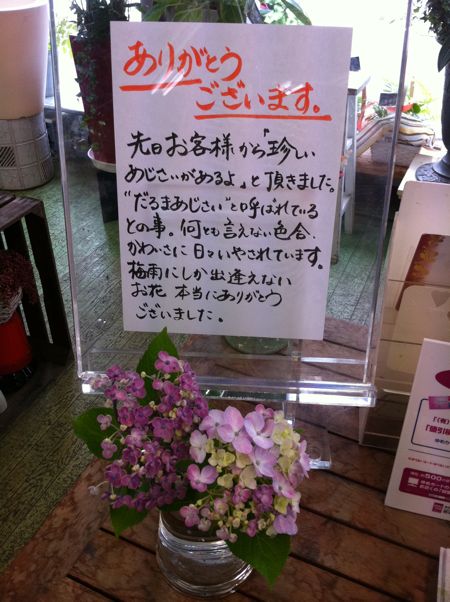 ありがとう
ございます。
先日お客様から「珍しい
あじさいがあるよ」と頂きました。
"だるまあじさい"と呼ばれている
との事。何とも言えない色合、
かわいさに日々いやされています。
梅雨にしか出逢えない
お花 本当にありがとう
ございました。
(有)